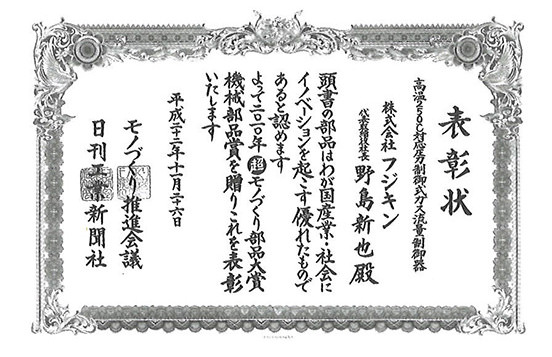 表彰状
高温250℃対応圧力制御式ガス流量制御器
株式会社フジキン
野島新也殿
頭書の部品はわが国産業・社会に
イノベーションを起こす優れたもので
あると認めます
よって二〇一〇年超モノづくり部品大賞
機械部品賞を贈りこれを表彰
いたします
平成二十二年十一月二十六日
モノづくり推進会議
日刊工業新聞社